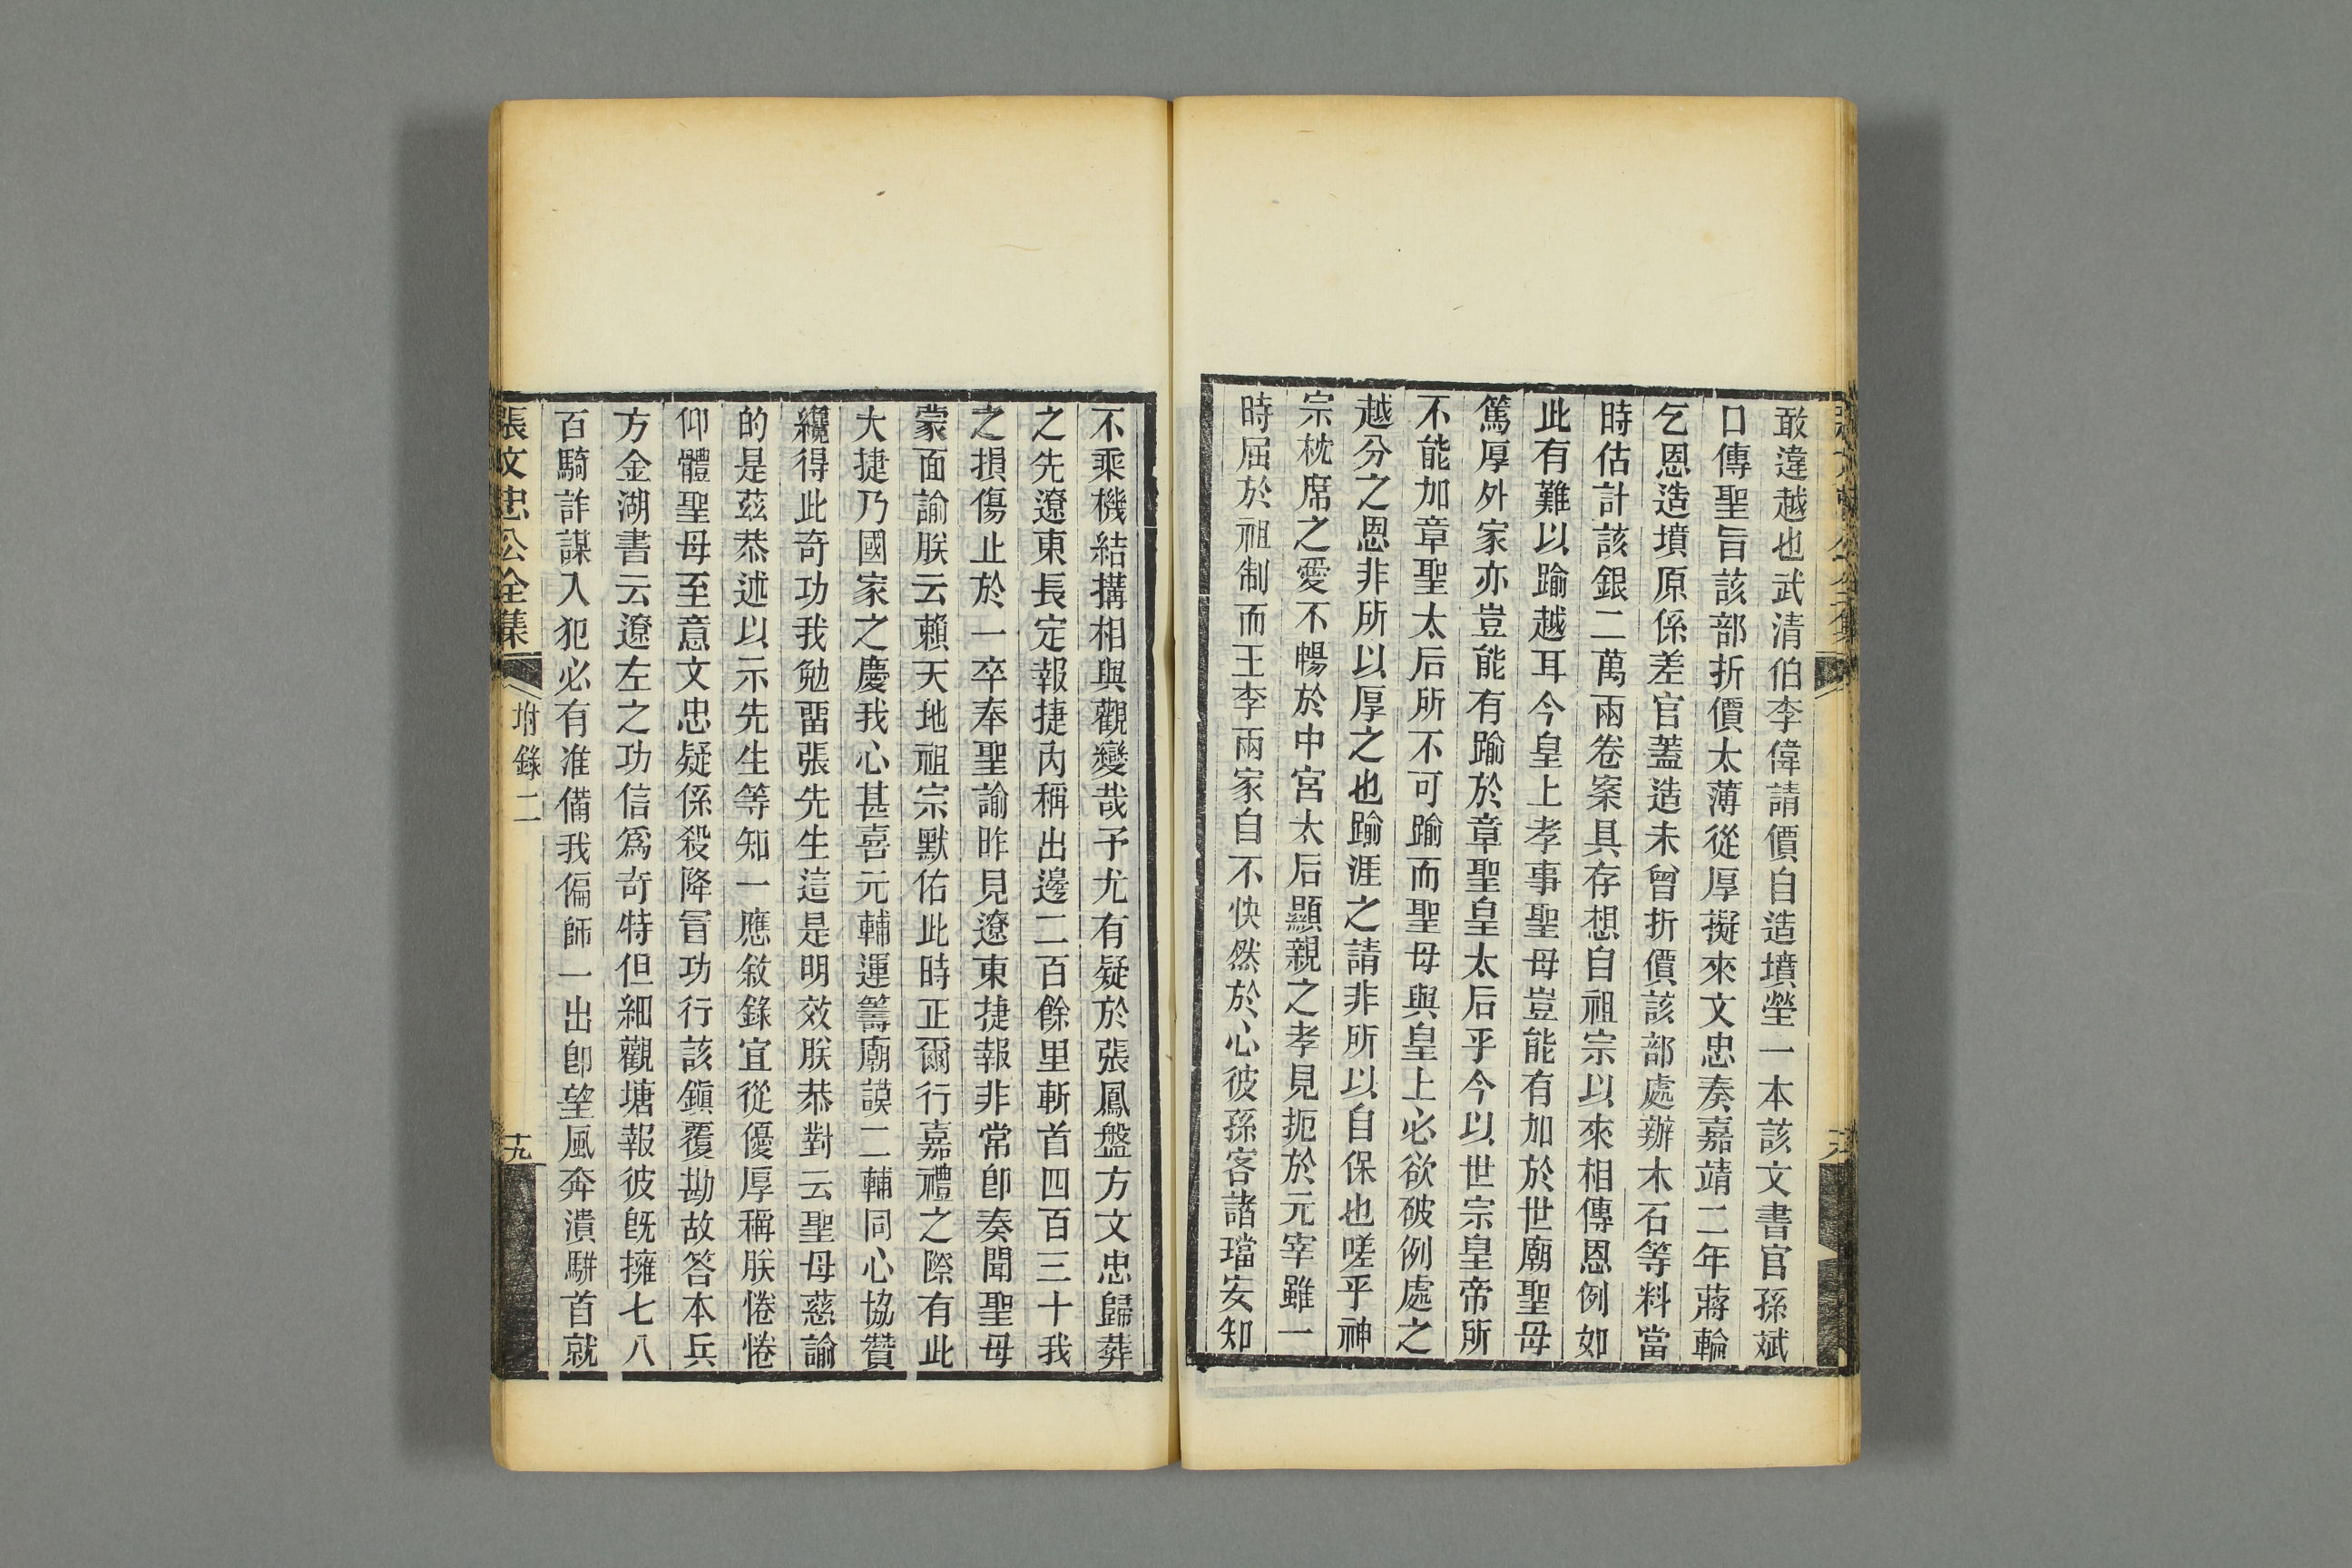 敢違越也武清伯李偉請價自造墳塋一本該文書官孫斌
口傳聖旨該部折價太薄從厚擬來文忠奏嘉靖二年蔣輪
乞恩造墳原係差官蓋造未曾折價該部處辦木石等料當
時估計該銀二萬兩卷案具存想自祖宗以來相傳恩例如
此有難以踰越耳今皇上孝事聖母豈能有加於世廟聖母
篤厚外家亦豈能有踰於章聖皇太后乎今以世宗皇帝所
不能加章聖太后所不可踰而聖母與皇上必欲破例處之
越分之恩非所以厚之也踰涯之請非所以自保也嗟乎神
宗枕席之愛不暢於中宮太后顯親之孝見扼於元宰雖一
時屈於祖制而王李兩家自不快然於心彼孫客諸璫安知
不乘機結搆相與觀變哉予尤有疑於張鳳盤方文忠歸葬
之先遼東長定報捷內稱出邊二百餘里斬首四百三十我
之損傷止於一卒奉聖諭昨見遼東捷報非常卽奏聞聖母
蒙面諭朕云賴天地祖宗默佑此時正爾行嘉禮之際有此
大捷乃國家之慶我心甚喜元輔運籌廟謨二輔同心協贊
纔得此奇功我勉畱張先生這是明效朕恭對云聖母慈諭
的是茲恭述以示先生等知一應敘錄宜從優厚稱朕惓惓
仰體聖母至意文忠疑係殺降冒功行該鎭覆勘故答本兵
方金湖書云遼左之功信爲奇特但細觀塘報彼旣擁七八
百騎詐謀入犯必有准備我偏師一出卽望風奔潰駢首就
張文忠公全集
附錄二
十九